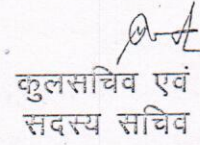 कुलसचिव एवं
सदस्य सचिव